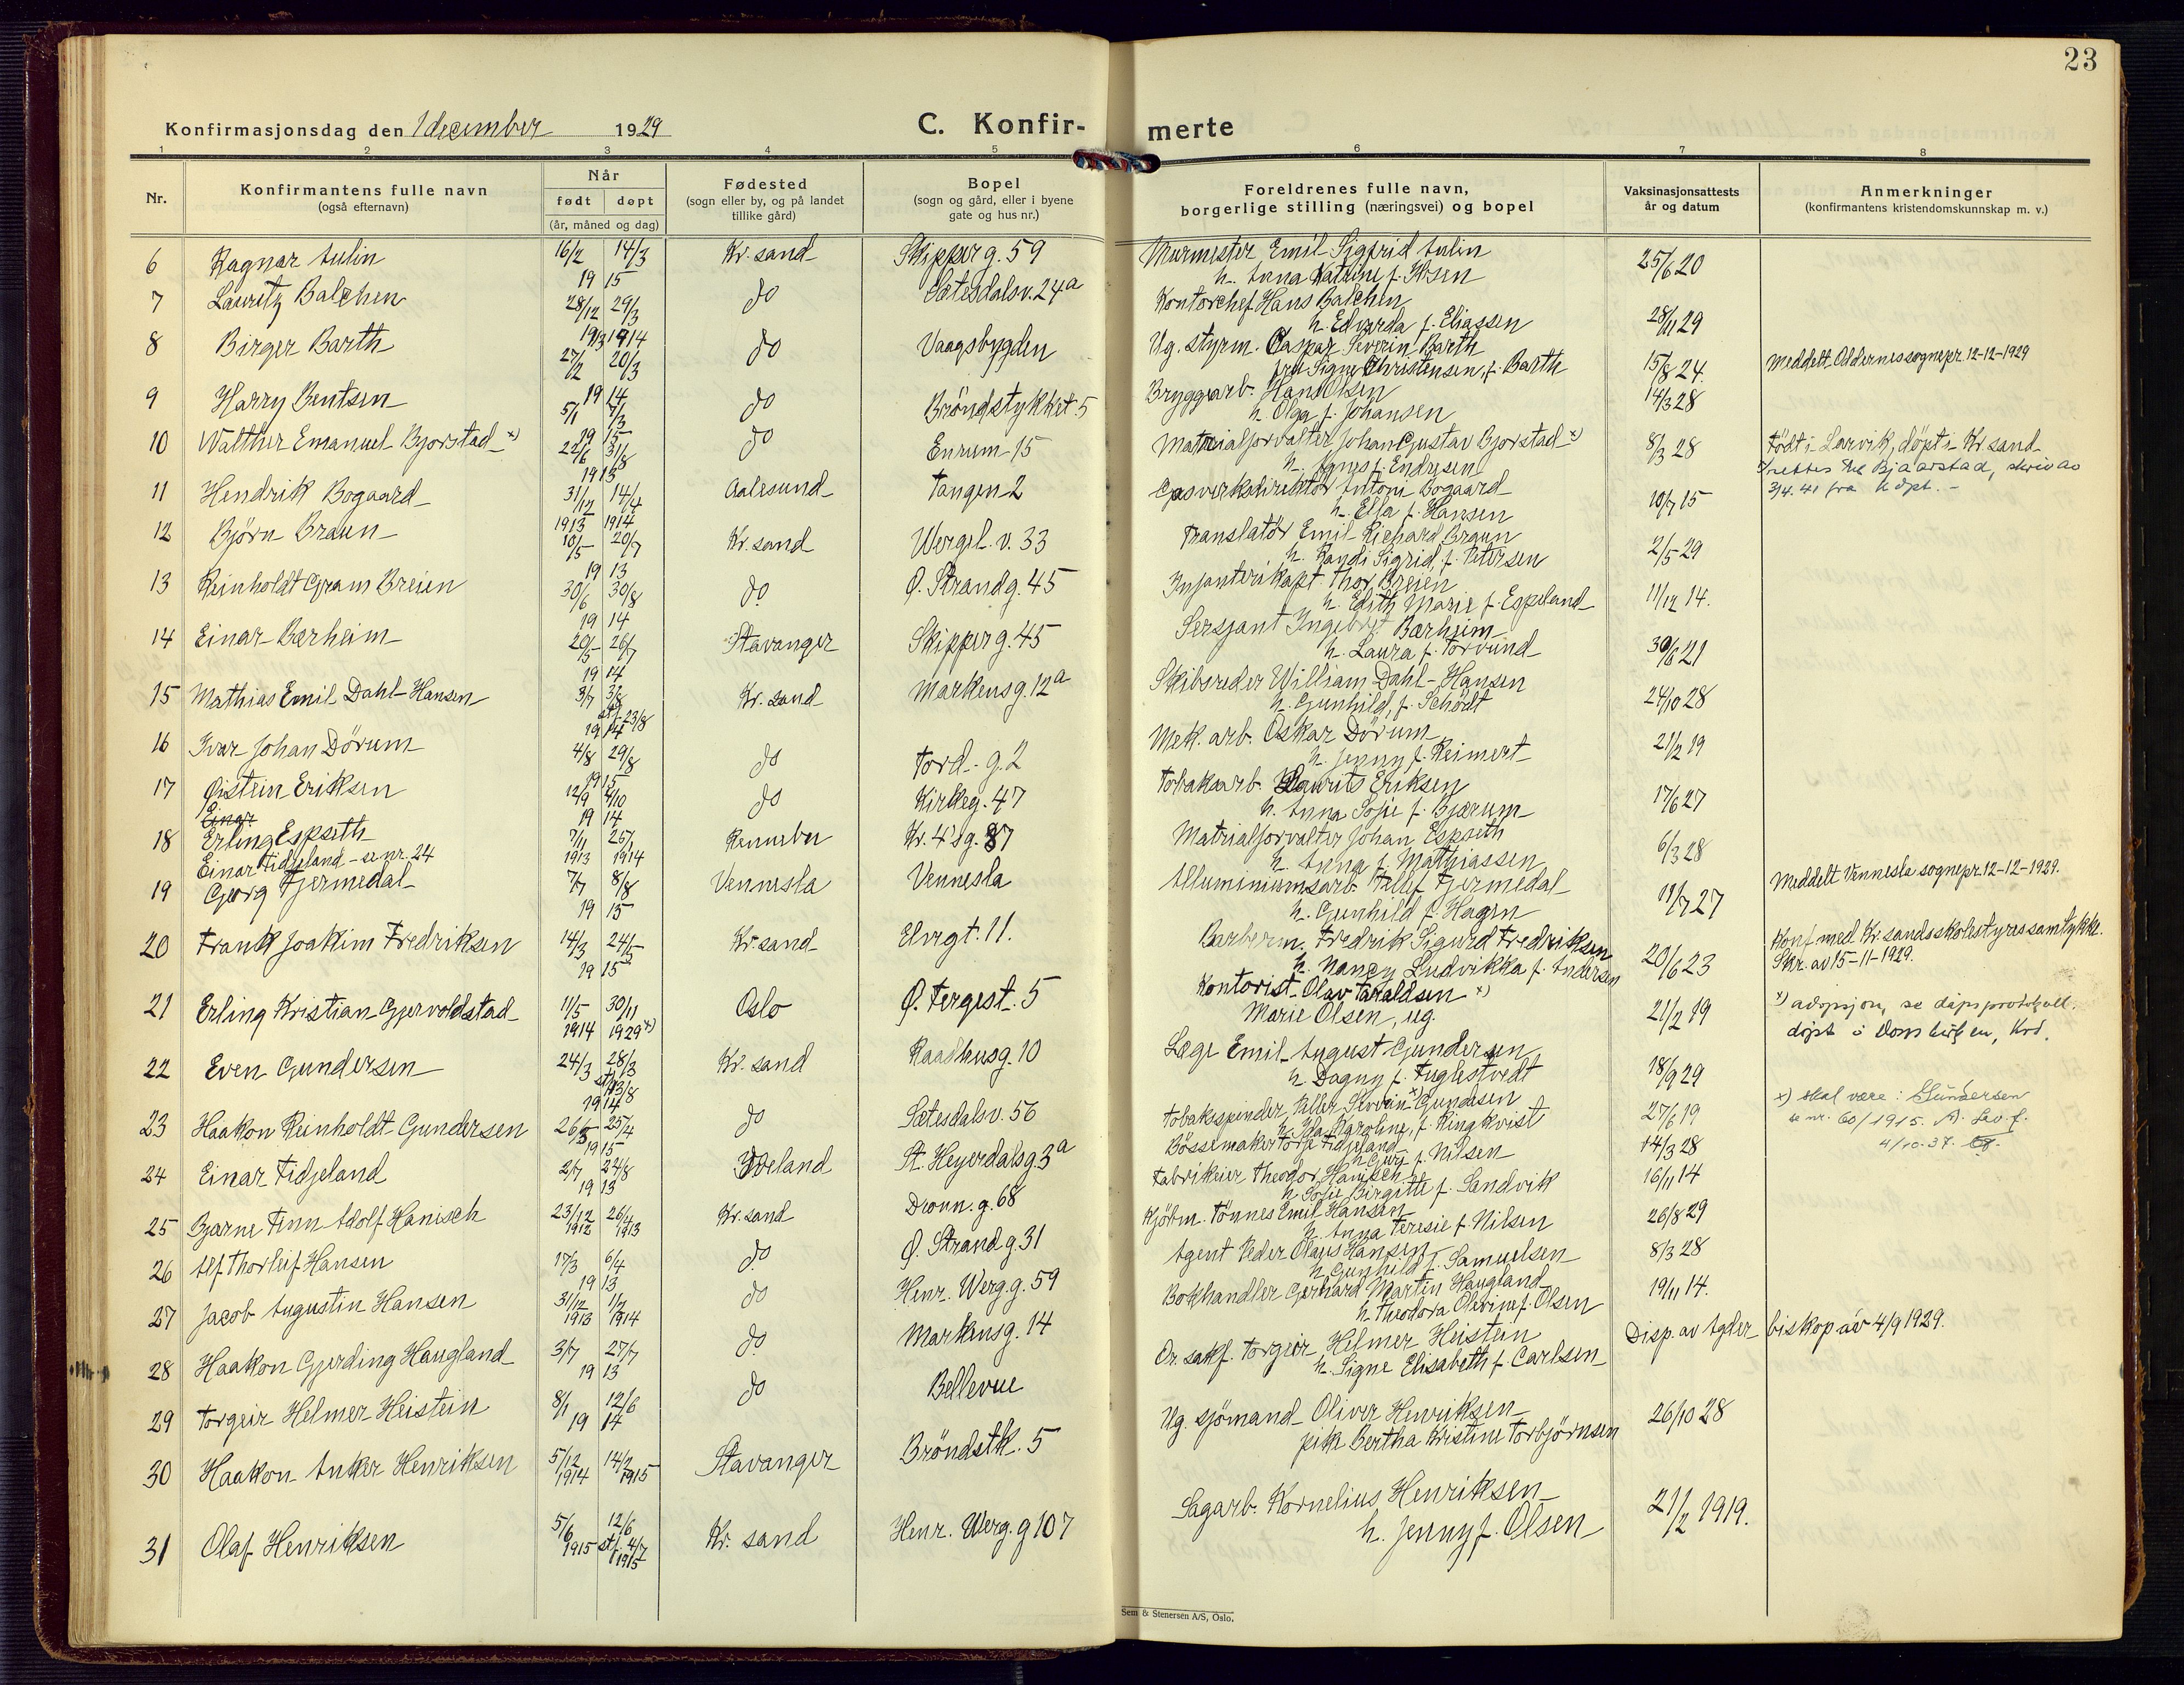 23
Konfirmasjonsdag den 1 december 1929
C. Konfirmerte
1 2 3 4 5 6 7 8
Nr.
Konfirmantens fulle navn
(også efternavn)
Når
født døpt
(år, måned og dag)
Fødested
(sogn eller by, og på landet
tillike gård)
Bopel
(sogn og gård, eller i byene
gate og hus nr.)
Foreldrenes fulle navn,
borgerlige stilling (næringsvei) og bopel
Vaksinasjonsattests
år og datum
Anmerkninger
(konfirmantens kristendomskunnskap m. v.)
6 Ragnar Aulin 16/2 14/3 1915 Kr.sand Skipperg. 59 Murmester Emil Sigfrid Aulin 25/6 20
h. Anna Katrine f. Ibsen
7 Lauritz Balchen 28/12 29/3 1913 1914 do Sætesdalsv. 24a Kontorchef Hans Balchen 28/11 29
h. Edvarda f. Eliassen
8 Birger Barth 27/2 20/3 1914 do Vaagsbygden Ug. styrm. Caspar Severin Barth 15/8 24. Meddelt Oddernes sognepr. 12-12-1929
fru Signe Christensen, f. Barth
9 Harry Bentsen 5/1 4/3 1915 do Bröndstykket 5 Bryggearb. Hans Olsen 14/3 28
h. Olga f. Johansen
10 Walther Emanuel Bjorstad x) 22/6 31/8 1913 do Enrum 15 Materialforvalter Johan Gustav Bjorstad x) 8/3 28 Født i Larvik, døpt i Kr.sand
h. Agnes f. Endresen x) rettes til Bjaarstad, skriv av
3/4.41 fra K.dpt. -
11 Hendrik Bogaard 31/12 14/4 1913 1914 Aalesund Tangen 2 Gasverksdirektør Antoni Bogaard 10/7 15
h. Ella f. Hansen
12 Bjørn Braun 10/5 20/7 1913 Kr.sand Wergel. v. 33 Translatør Emil Richard Braun 2/5 29
h. Randi Sigrid, f. Petersen
13 Reinholdt Gram Breien 30/6 30/8 1914 do. Ø. Strandg. 45 Infanterikapt. Thor Breien 11/12 14.
h. Edith Marie f. Espeland
14 Einar Bærheim 20/5 26/7 1914 Stavanger Skipperg. 45 Sersjant Ingebret Bærheim 30/6 21
h. Laura f. Torvund
15 Mathias Emil Dahl-Hansen 3/7 3/8 stf. 23/8 1914 Kr. sand Markensg. 12a Skibsreder William Dahl-Hansen 24/10 28
h. Gunhild, f. Schödt
16 Ivar Johan Dörum 4/8 29/8 1915 do Tord. g. 2 Mek. arb. Oskar Dörum 21/2 19
h. Jenny f. Reimert
17 Øistein Eriksen 12/9 4/10 1914 do Kirkeg. 47 Tobakarb. Laurits Eriksen 17/6 27
h. Anna Sofie f. Bjærum
Einar
18 Erling Espseth 7/11 25/1 1913 1914 Rennebu Kr. 4's g. 87 Matrialforvalter Johan Espseth 6/3 28
h. Anna f. Mathiassen
Einar Fidjeland - se nr. 24
19 Georg Fjermedal 7/7 8/8 1915 Vennesla Vennesla Alluminiumsarb. Tellef Fjermedal 19/7 27 Meddelt Vennesla sognepr. 12-12-1929.
h. Gunhild f. Hagen
20 Frank Joakim Fredriksen 14/3 24/5 1915 Kr.sand Elvegt. 11. Barberm. Fredrik Sigurd Fredriksen 20/6 23 Konf. med Kr.sands skolestyres samtykke.
h. Nancy Ludvikka f. Andersen Skr. av 15-11-1929.
21 Erling Kristian Gjervoldstad 11/5 30/11 1914 1929 x) Oslo Ø. Tergest. 5 Kontorist Olav Taraldsen x) 21/2 19 x) adopsjon, se dåpsprotokoll.
Marie Olsen, ug. døpt i Domkirken, Krs.
22 Even Gundersen 24/3 28/3 stf. 23/8 1914 Kr. sand Raadhusg. 10 Læge Emil August Gundersen 18/9 29
h. Dagny f. Fuglestvedt
23 Haakon Reinholdt Gundersen 26/3 25/4 1915 do Sætesdalsv. 56 Tobaksspinder Peller Severin x) Gundersen 27/6 19 x) skal være: Gundersen
h. Ida Karoline, f. Ringkvist se nr. 60/1915. A. Lev. f.
4/10.37.
24 Einar Fidjeland 2/7 24/8 1913 Iveland St. Heyerdalsg. 3a Bössemaker Torje Fidjeland 14/3 28
h. Guri f. Nilsen
25 Bjarne Finn Adolf Hanisch 23/12 26/4 1912 1913 Kr.sand Dronn. g. 68 Fabrikeier Theodor Hanisch 16/11 14
h. Sofie Birgitte f. Sandvik
26 Alf Thorleif Hansen 17/3 6/4 1913 do Ø. Strandg. 31 Kjöbm. Tönnes Emil Hansen 26/8 29
h. Anna Teresie f. Nilsen
27 Jacob Augustin Hansen 31/12 1/2 1913 1914 do Henr. Werg. g. 59 Agent Peder Olaus Hansen 8/3 28
h. Gunhild f. Samuelsen
28 Haakon Gjerding Haugland 3/7 27/7 1913 do Markensg. 14 Bokhandler Gerhard Martin Haugland 19/11 14.
h. Theodora Olevine f. Olsen
29 Torgeir Helmer Heistein 8/1 12/6 1914 do Bellevue Or. sakf. Torgeir Helmer Heistein Disp. av Agder biskop av 4/9 1929.
h. Signe Elisabeth f. Carlsen
30 Haakon Anker Henriksen 5/12 14/2 1914 1915 Stavanger Bröndstk. 5 Ug. sjömand Oliver Henriksen 26/10 28
pike Bertha Kristine Torbjörnsen
31 Olaf Henriksen 5/6 12/6 1915 stf. 4/7 1915 Kr. sand Henr. Werg. g 107 Sagarb. Kornelius Henriksen 21/2 1919.
h. Jenny f. Olsen
Sem & Stenersen A/S, Oslo.